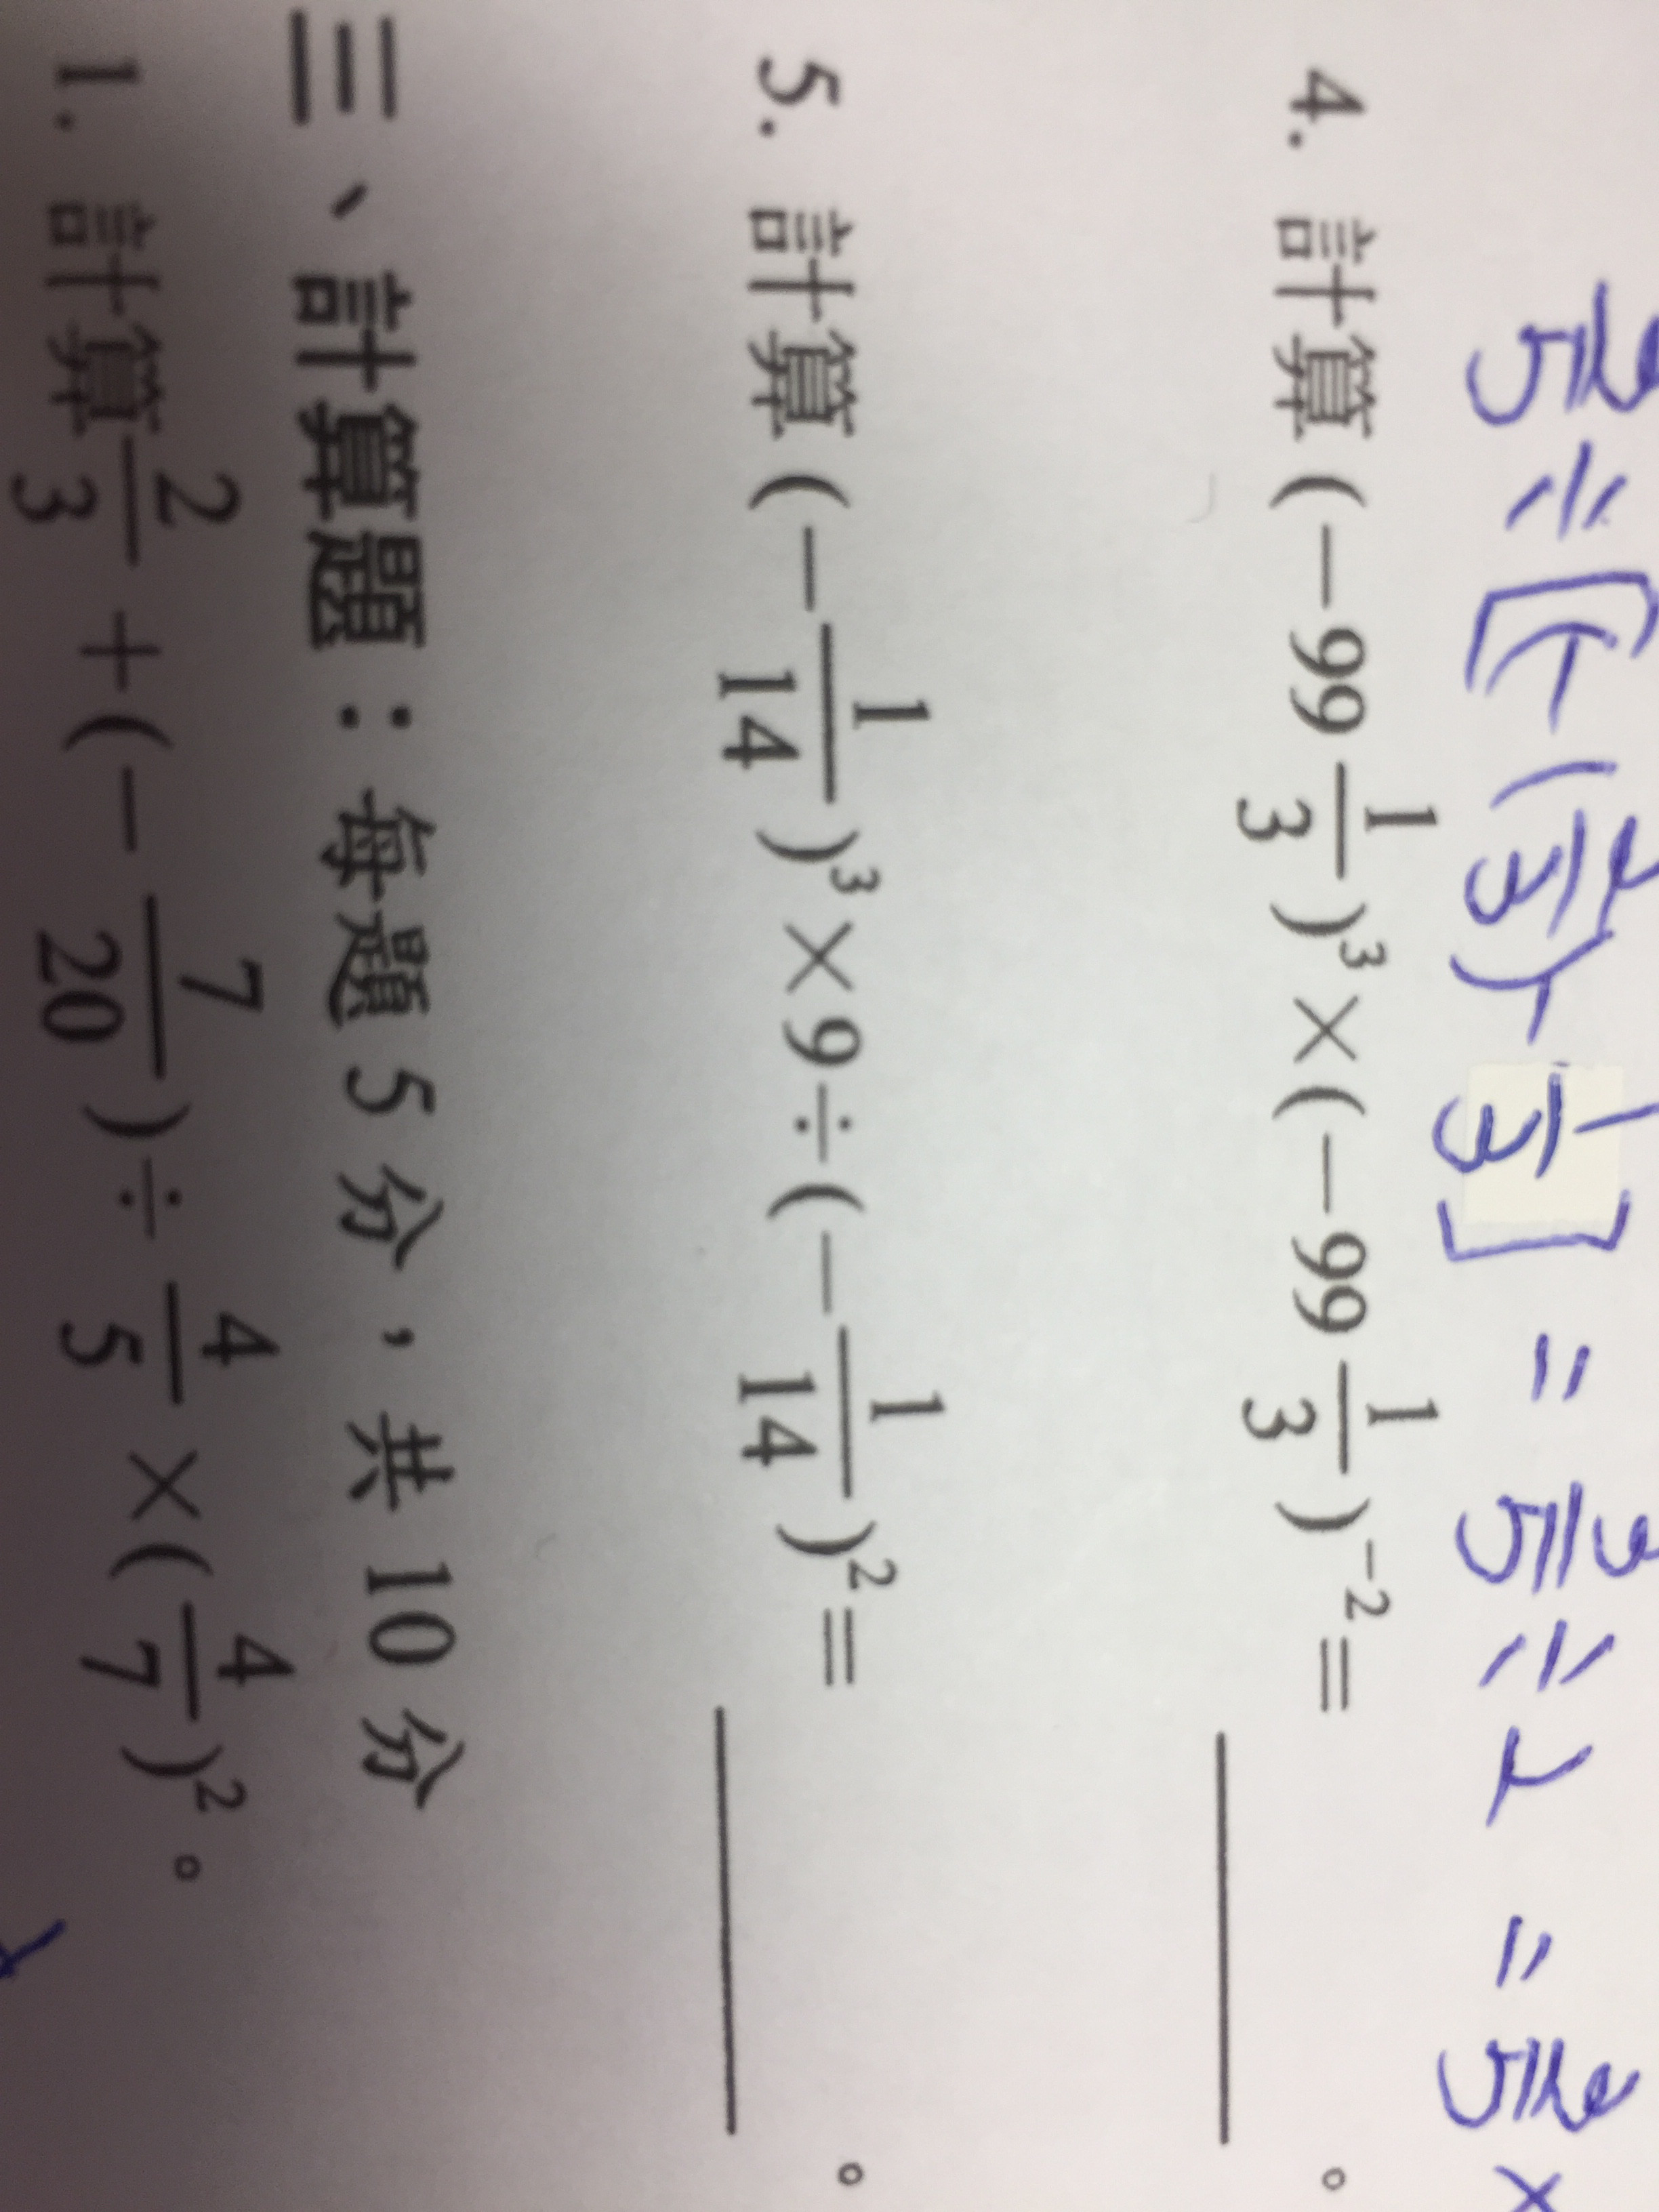 ÷[(-(2/3))-1/3] = 3/5÷1 =
4. 計算(-99 1/3)³×(-99 1/3)⁻²=________。
5. 計算(-1/14)³×9÷(-1/14)²=________。
三、計算題:每題 5 分,共 10 分
1. 計算2/3+(-7/20)÷4/5×(4/7)²。